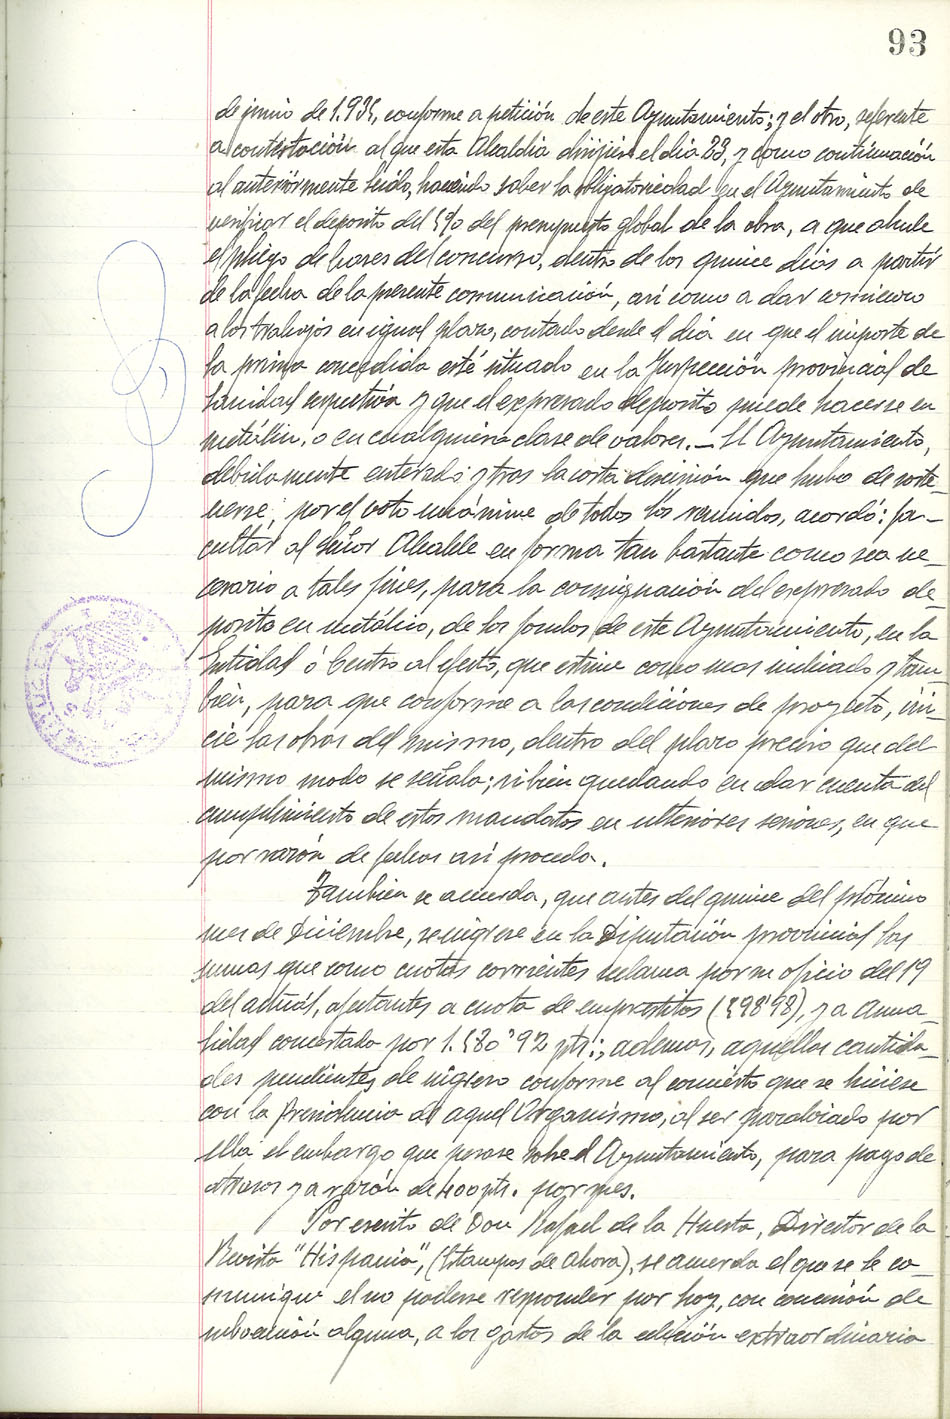 93
de junio de 1.935, conforme a petición de este Ayuntamiento; y el otro, referente
a contestación al que esta Alcaldía dirijiera el día 23, y como continuación
al anteriormente leido, haciendo saber la obligatoriedad en el Ayuntamiento de
verificar el deposito del 5% del presupuesto global de la obra, a que alude
el pliego de bases del concurso, dentro de los quince dias a partir
de la fecha de la presente comunicación, asi como a dar comienzo
a los trabajos en igual plazo, contado desde el dia en que el importe de
la prima concedida esté situado en la Inspección provincial de
Sanidad respectiva y que el expresado deposito puede hacerse en
metálico, o en cualquiera clase de valores. — El Ayuntamiento,
debidamente enterado y tras la corta discusión que hubo de soste-
nerse, por el voto unánime de todos los reunidos, acordó: fa-
cultar al Señor Alcalde en forma tan bastante como sea ne-
cesario a tales fines, para la consignación del expresado de-
posito en metálico, de los fondos de este Ayuntamiento, en la
Entidad ó Centro al efecto, que estime como mas indicado y tam-
bien, para que conforme a las condiciones de proyecto, ini-
cie las obras del mismo, dentro del plazo preciso que del
mismo modo se señala; si bien quedando en dar cuenta del
cumplimiento de estos mandatos en ulteriores sesiones, en que
por razón de fechas asi proceda.
Tambien se acuerda, que antes del quince del próximo
mes de Diciembre, se ingrese en la Diputación provincial las
sumas que como cuotas corrientes reclama por su oficio del 19
del actual, afectantes a cuota de emprestitos (598'98), y a anua-
lidad concertada por 1.580'92 pts.; ademas, aquellas cantida-
des pendientes de ingreso conforme al concierto que se hiciese
con la Presidencia de aquel Organismo, al ser paralizado por
ella el embargo que pesase sobre el Ayuntamiento, para pago de
atrasos y a razón de 400 pts. por mes.
Por escrito de Don Rafael de la Huerta, Director de la
Revista "Hispania", (Estampas de Ahora), se acuerda el que se le co-
munique el no poderse responder por hoy, con concesión de
subvención alguna, a los gastos de la edición extraordinaria